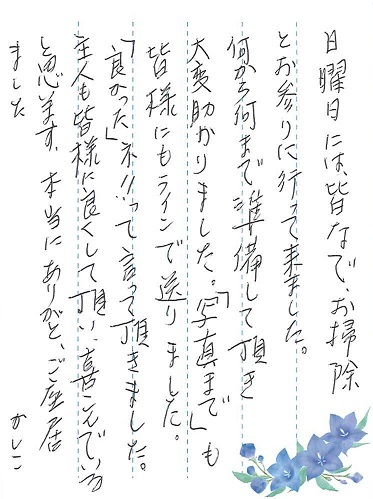 日曜日には、皆なで、お掃除
とお参りに行って来ました。
何から何まで準備して頂き
大変助かりました。「写真まで」も
皆様にもラインで送りました。
「良かった」ネ!!って言って頂きました。
主人も皆様に良くして頂い、喜こんでいる
と思います。本当にありがと、ご座居
ました かしこ